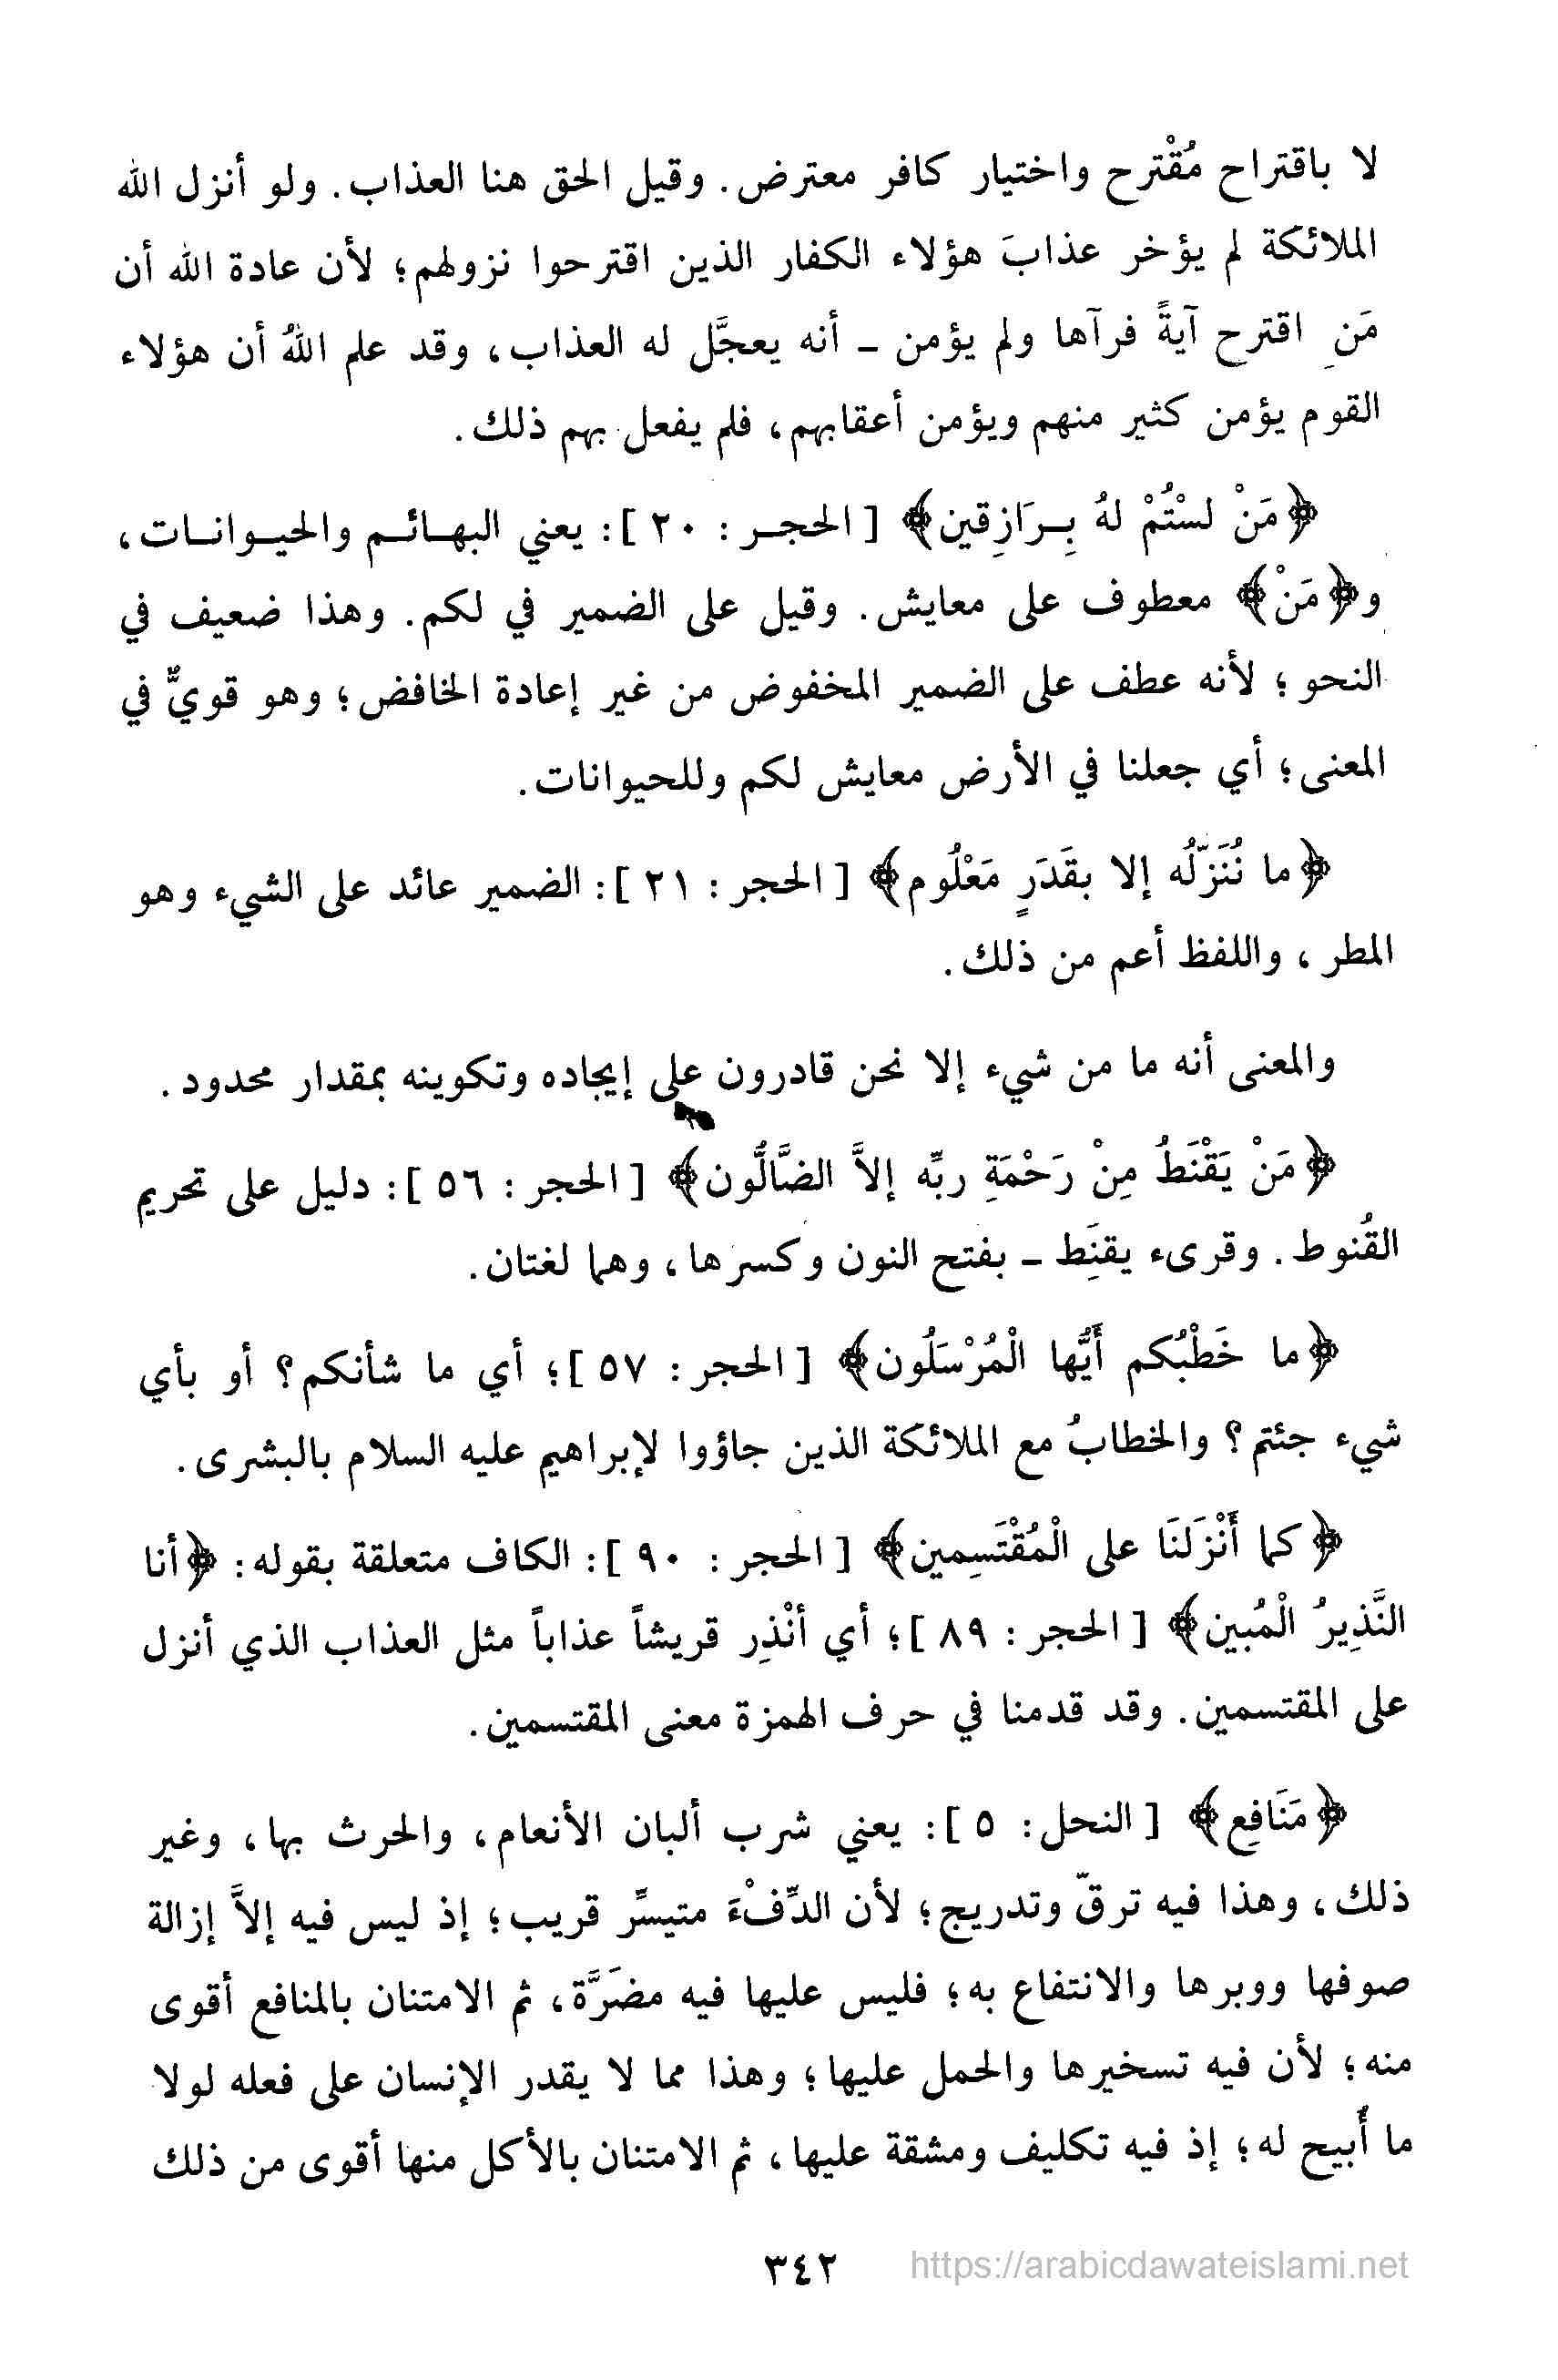 لا باقتراح مُقْترح واختيار كافر معترض. وقيل الحق هنا العذاب. ولو أنزل الله
الملائكة لم يؤخر عذابَ هؤلاء الكفار الذين اقترحوا نزولهم؛ لأن عادة الله أن
مَنِ اقترح آيةً فرآها ولم يؤمن ـ أنه يعجَّل له العذاب، وقد علم اللهُ أن هؤلاء
القوم يؤمن كثير منهم ويؤمن أعقابهم، فلم يفعل بهم ذلك.
﴿مَنْ لسْتُمْ لهُ بِـرَازِقين﴾ [ الحجـر : ٢٠ ]: يعني البهـائـم والحيـوانـات،
و﴿مَنْ﴾ معطوف على معايش. وقيل على الضمير في لكم. وهذا ضعيف في
النحو؛ لأنه عطف على الضمير المخفوض من غير إعادة الخافض؛ وهو قويٌّ في
المعنى؛ أي جعلنا في الأرض معايش لكم وللحيوانات.
﴿ما نُنَزّلُه إلا بقَدَرٍ مَعْلُوم﴾ [ الحجر : ٢١ ]: الضمير عائد على الشيء وهو
المطر ، واللفظ أعم من ذلك.
والمعنى أنه ما من شيء إلا نحن قادرون على إيجاده وتكوينه بمقدار محدود.
﴿مَنْ يَقْنَطُ مِنْ رَحْمَةِ ربِّه إلاَّ الضَّالُّون﴾ [ الحجر : ٥٦ ]: دليل على تحريم
القُنوط. وقرىء يقنَِط ـ بفتح النون وكسرها، وهما لغتان.
﴿ما خَطْبُكم أَيُّها الْمُرْسَلُون﴾ [ الحجر : ٥٧ ]؛ أي ما شأنكم؟ أو بأي
شيء جئتم؟ والخطابُ مع الملائكة الذين جاؤوا لإبراهيم عليه السلام بالبشرى.
﴿كما أَنْزَلنَا على الْمُقْتَسِمين﴾ [ الحجر : ٩٠ ]: الكاف متعلقة بقوله: ﴿أنا
النَّذِيرُ الْمُبين﴾ [ الحجر : ٨٩ ]؛ أي أنْذِر قريشاً عذاباً مثل العذاب الذي أنزل
على المقتسمين. وقد قدمنا في حرف الهمزة معنى المقتسمين.
﴿مَنَافِع﴾ [ النحل: ٥ ]: يعني شرب ألبان الأنعام، والحرث بها، وغير
ذلك، وهذا فيه ترقّ وتدريج؛ لأن الدِّفْءَ متيسِّر قريب؛ إذ ليس فيه إلاَّ إزالة
صوفها ووبرها والانتفاع به؛ فليس عليها فيه مضَرَّة، ثم الامتنان بالمنافع أقوى
منه؛ لأن فيه تسخيرها والحمل عليها؛ وهذا مما لا يقدر الإنسان على فعله لولا
ما أُبيح له؛ إذ فيه تكليف ومشقة عليها، ثم الامتنان بالأكل منها أقوى من ذلك
٣٤٢
https://arabicdawateislami.net